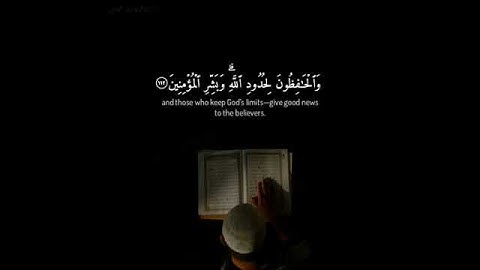 وَٱلْحَٰفِظُونَ لِحُدُودِ ٱللَّهِ ۗ وَبَشِّرِ ٱلْمُؤْمِنِينَ ١١٢
and those who keep God's limits—give good news
to the believers.